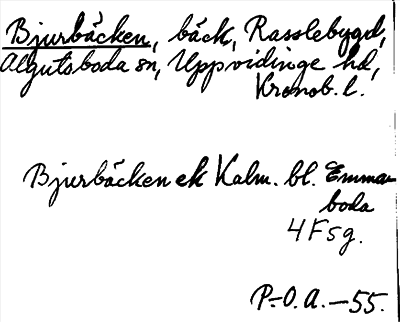 Bjurbäcken, bäck, Rasslebygd,
Algutsboda sn, Uppvidinge hd,
Kronob. l.
Bjurbäcken ek Kalm. bl. Emma-
boda
4F5g.
P.-O.A.-55.